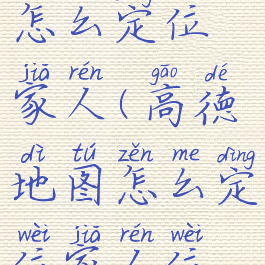 怎么定位
jiā rén gāo dé
家人(高德
dì tú zěn me dìng
地图怎么定
wèi jiā rén wèi
位家人位